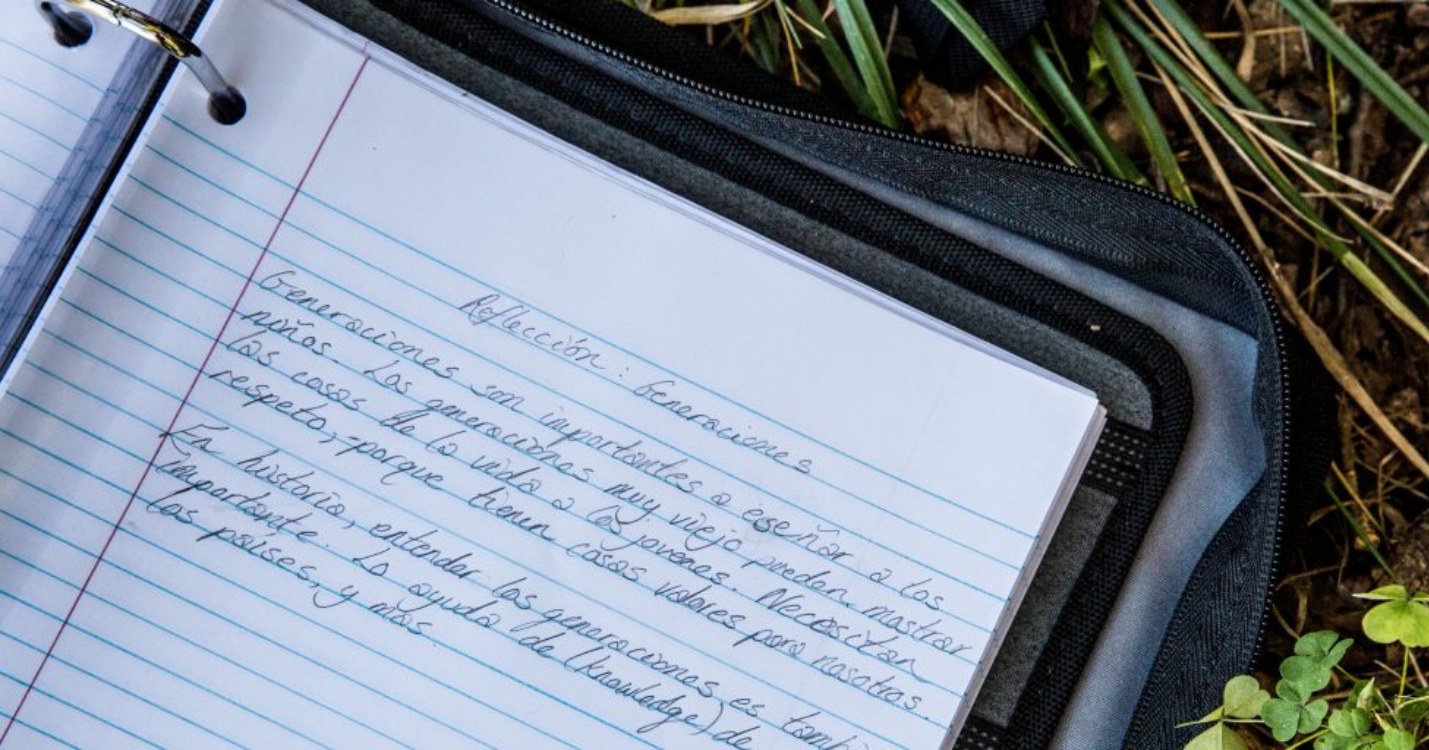 Reflección: Generaciones
Generaciones son importantes a eseñar a los
niños. Las generaciones muy viejo pueden mostrar
las cosas de la vida a los jovenes. Necesitan
respeto, porque tienen cosas valores para nosotros.
En historia, entender las generaciones es también
importante. La ayuda de (knowledge) de
los países, y más